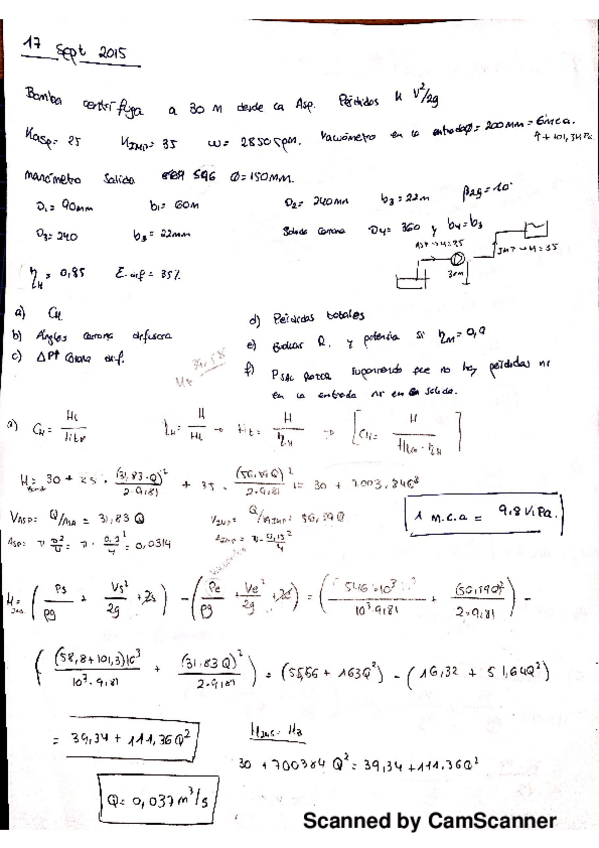 17 Sept 2015
Bomba centrífuga a 30 m desde la Asp. Pérdidas K V²/2g
Kasp = 25 KIMP = 35 ω = 2850 rpm. Vacuómetro en la entrada Ø = 200mm = 6mca.
+ 101,3 KPa
manómetro Salida 546 Ø = 150mm.
D₁ = 90mm b₁ = 60m D₂ = 240mm b₂ = 22m β₂g = 10°
D₃ = 240 b₃ = 22mm Salida Corona D₄ = 360 y b₄ = b₃
ASP → K=25 IMP → K=35
30m
η_H = 0,85 E.dif = 35%
a) CH
b) Ángulos corona difusora
c) ΔPt Corona dif.
d) Pérdidas totales
e) Evaluar R. y potencia si ηM = 0,9
f) Psal Rotor suponiendo que no hay pérdidas ni
en la entrada ni en la salida.
a) CH = Ht / Ht∞ ηH = H / Ht → Ht = H / ηH → [CH = H / Ht∞ · ηH]
H = 30 + 25 · (31,83·Q)² / 2·9,81 + 35 · (56,59Q)² / 2·9,81 = 30 +
VASP = Q/A = 31,83 Q
= π D²/4 = π · 0,2²/4 = 0,0314
1 m.c.a = 9.8 KPa.
H = (Ps/ρg + Vs²/2g + zs) - (Pe/ρg + Ve²/2g + ze) = (546·10³ / 10³·9,81 + (56,59Q)² / 2·9,81) -
((58,8+101,3)10³ / 10³·9,81 + (31,83Q)² / 2·9,81) = (55,66 + 163Q²) - (16,32 + 51,64Q²)
= 39,34 + 111,36Q²
30 + 7003,84 Q² = 39,34 + 111,36Q²
Q = 0,037 m³/s
Scanned by CamScanner